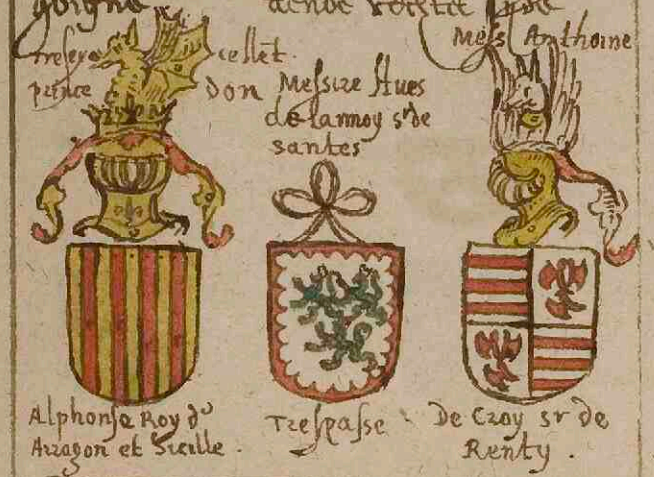 Mess Anthoine
treſexcellēt.
prince don
Meſsire Hues
de lannoy sr de
santes
Alphonſe Roy d'
Arragon et Sicille.
Treſpaſse
De Croy sr de
Renty.